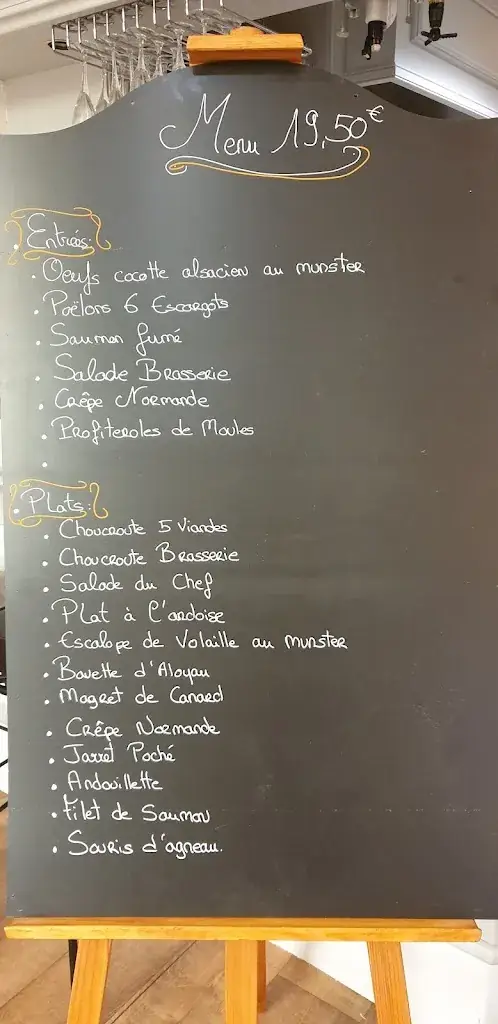 Menu 19,50€
Entrées:
. Oeufs cocotte alsacien au munster
. Poëlons 6 Escargots
. Saumon fumé
. Salade Brasserie
. Crêpe Normande
. Profiteroles de Moules
.
. Plats:
. Choucroute 5 Viandes
. Choucroute Brasserie
. Salade du Chef
. Plat à l'ardoise
. Escalope de Volaille au munster
. Bavette d'Aloyau
. Magret de Canard
. Crêpe Normande
. Jarret Poché
. Andouillette
. Filet de Saumon
. Souris d'agneau.